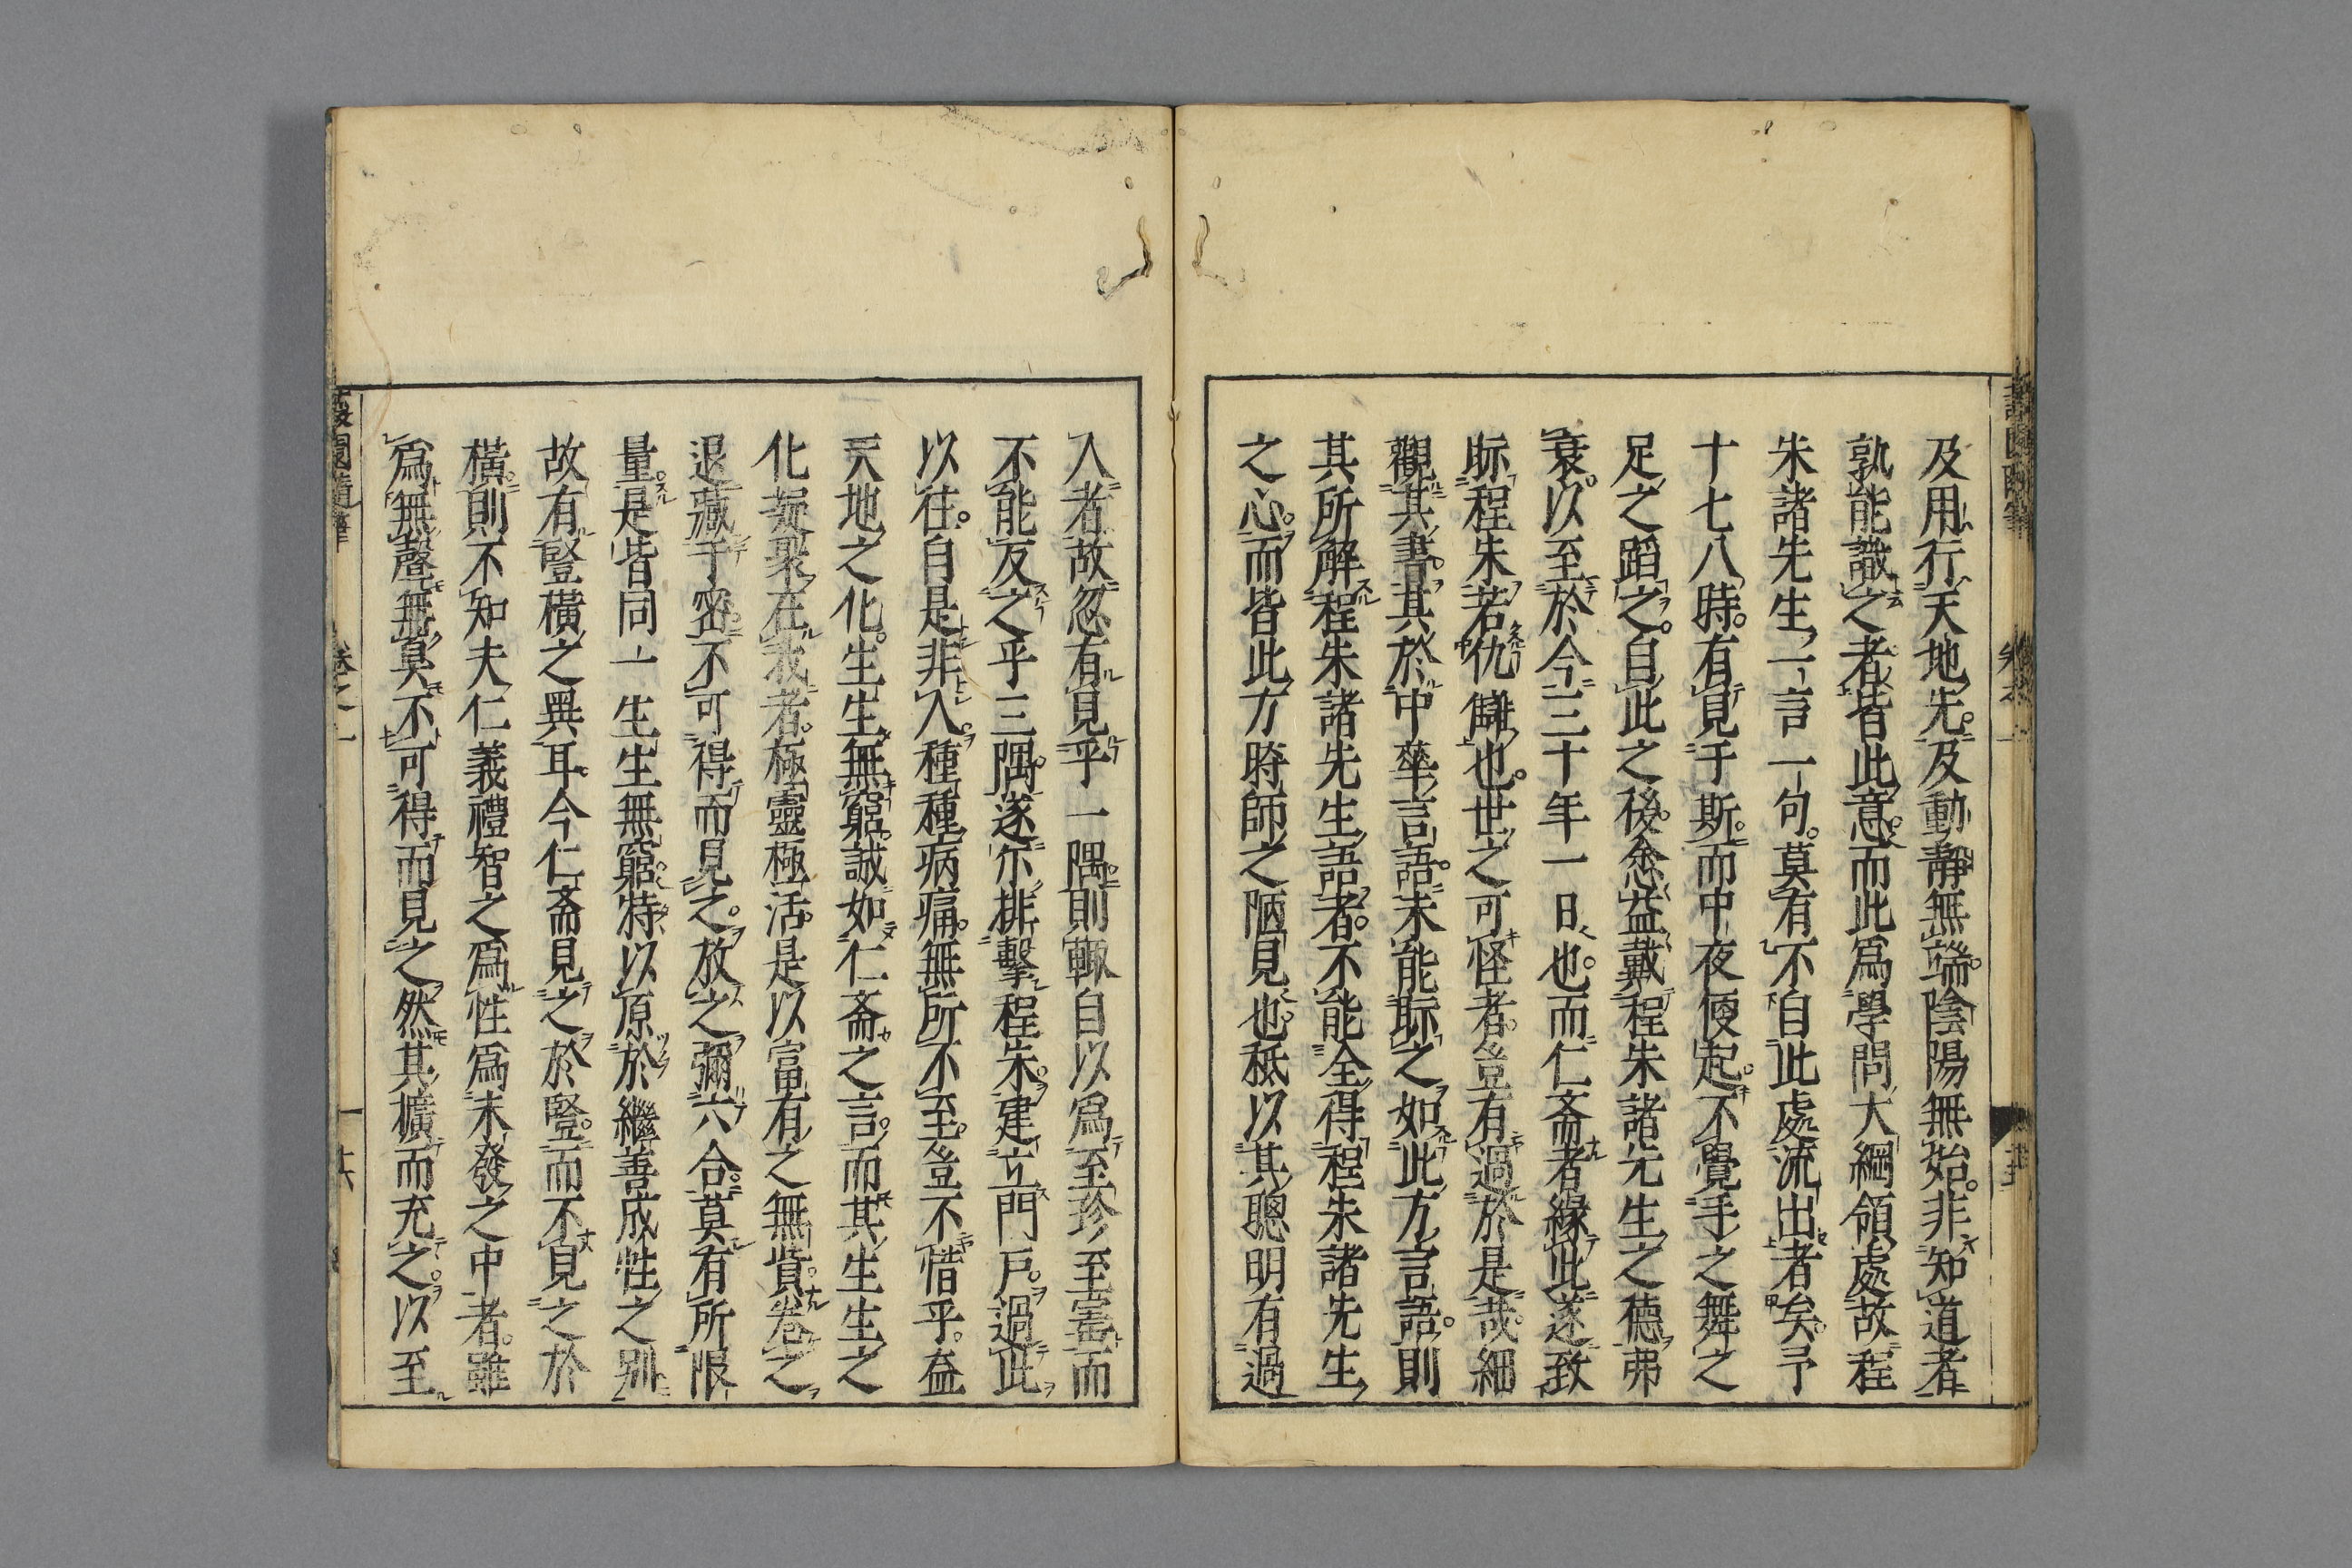 及用行天地先。及動靜無端。陰陽無始。非知道者
孰能識之者。皆此意。而此爲學問大綱領處。故程
朱諸先生。一言一句。莫有不自此處流出者矣。予
十七八時。有見于斯。而中夜便起。不覺手之舞之
足之蹈之。自此之後。愈益戴程朱諸先生之德弗
衰。以至於今三十年一日也。而仁斎者緣此遂致
眎程朱若仇讎也。世之可怪者。豈有過於是哉。細
觀其書。其於中華言語。未能眎之如此方言語。則
其所解程朱諸先生語者。不能全得程朱諸先生
之心。而皆此方時師之陋見也。秪以其聰明有過
入者。故忽有見乎一隅。則輙自以爲至珍至寚。而
不能反之乎三隅。遂尓排擊程朱。建立門戸。過此
以往。自是非人。種種病痛。無所不至。豈不惜乎。益
天地之化。生生無窮。誠如仁斎之言。而其生生之
化凝聚在我者。極靈極活。是以富有之無貲。卷之
退藏于密。不可得而見之。放之彌六合。莫有所限
量。是皆同一生生無窮。特以原於繼善成性之別
故有竪橫之異耳。今仁斎見之於竪。而不見之於
橫。則不知夫仁義禮智之爲性爲未發之中者。雖
爲無聲無臭不可得而見之。然其擴而充之。以至